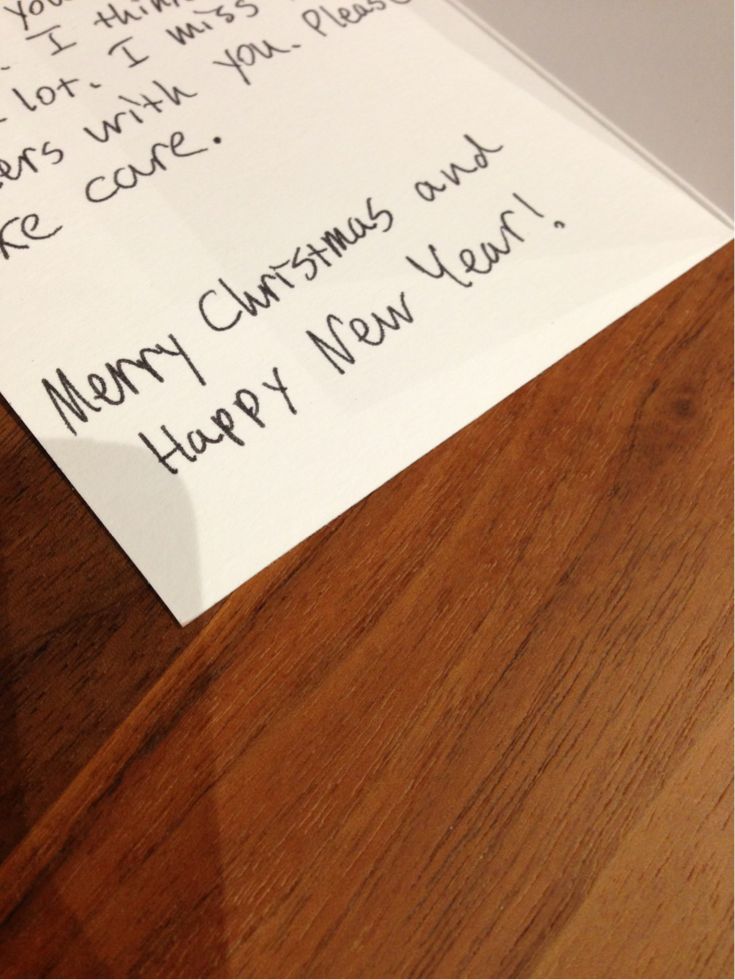 you
. I think
lot. I miss
ers with you. Please
ke care.
Merry Christmas and
Happy New Year!